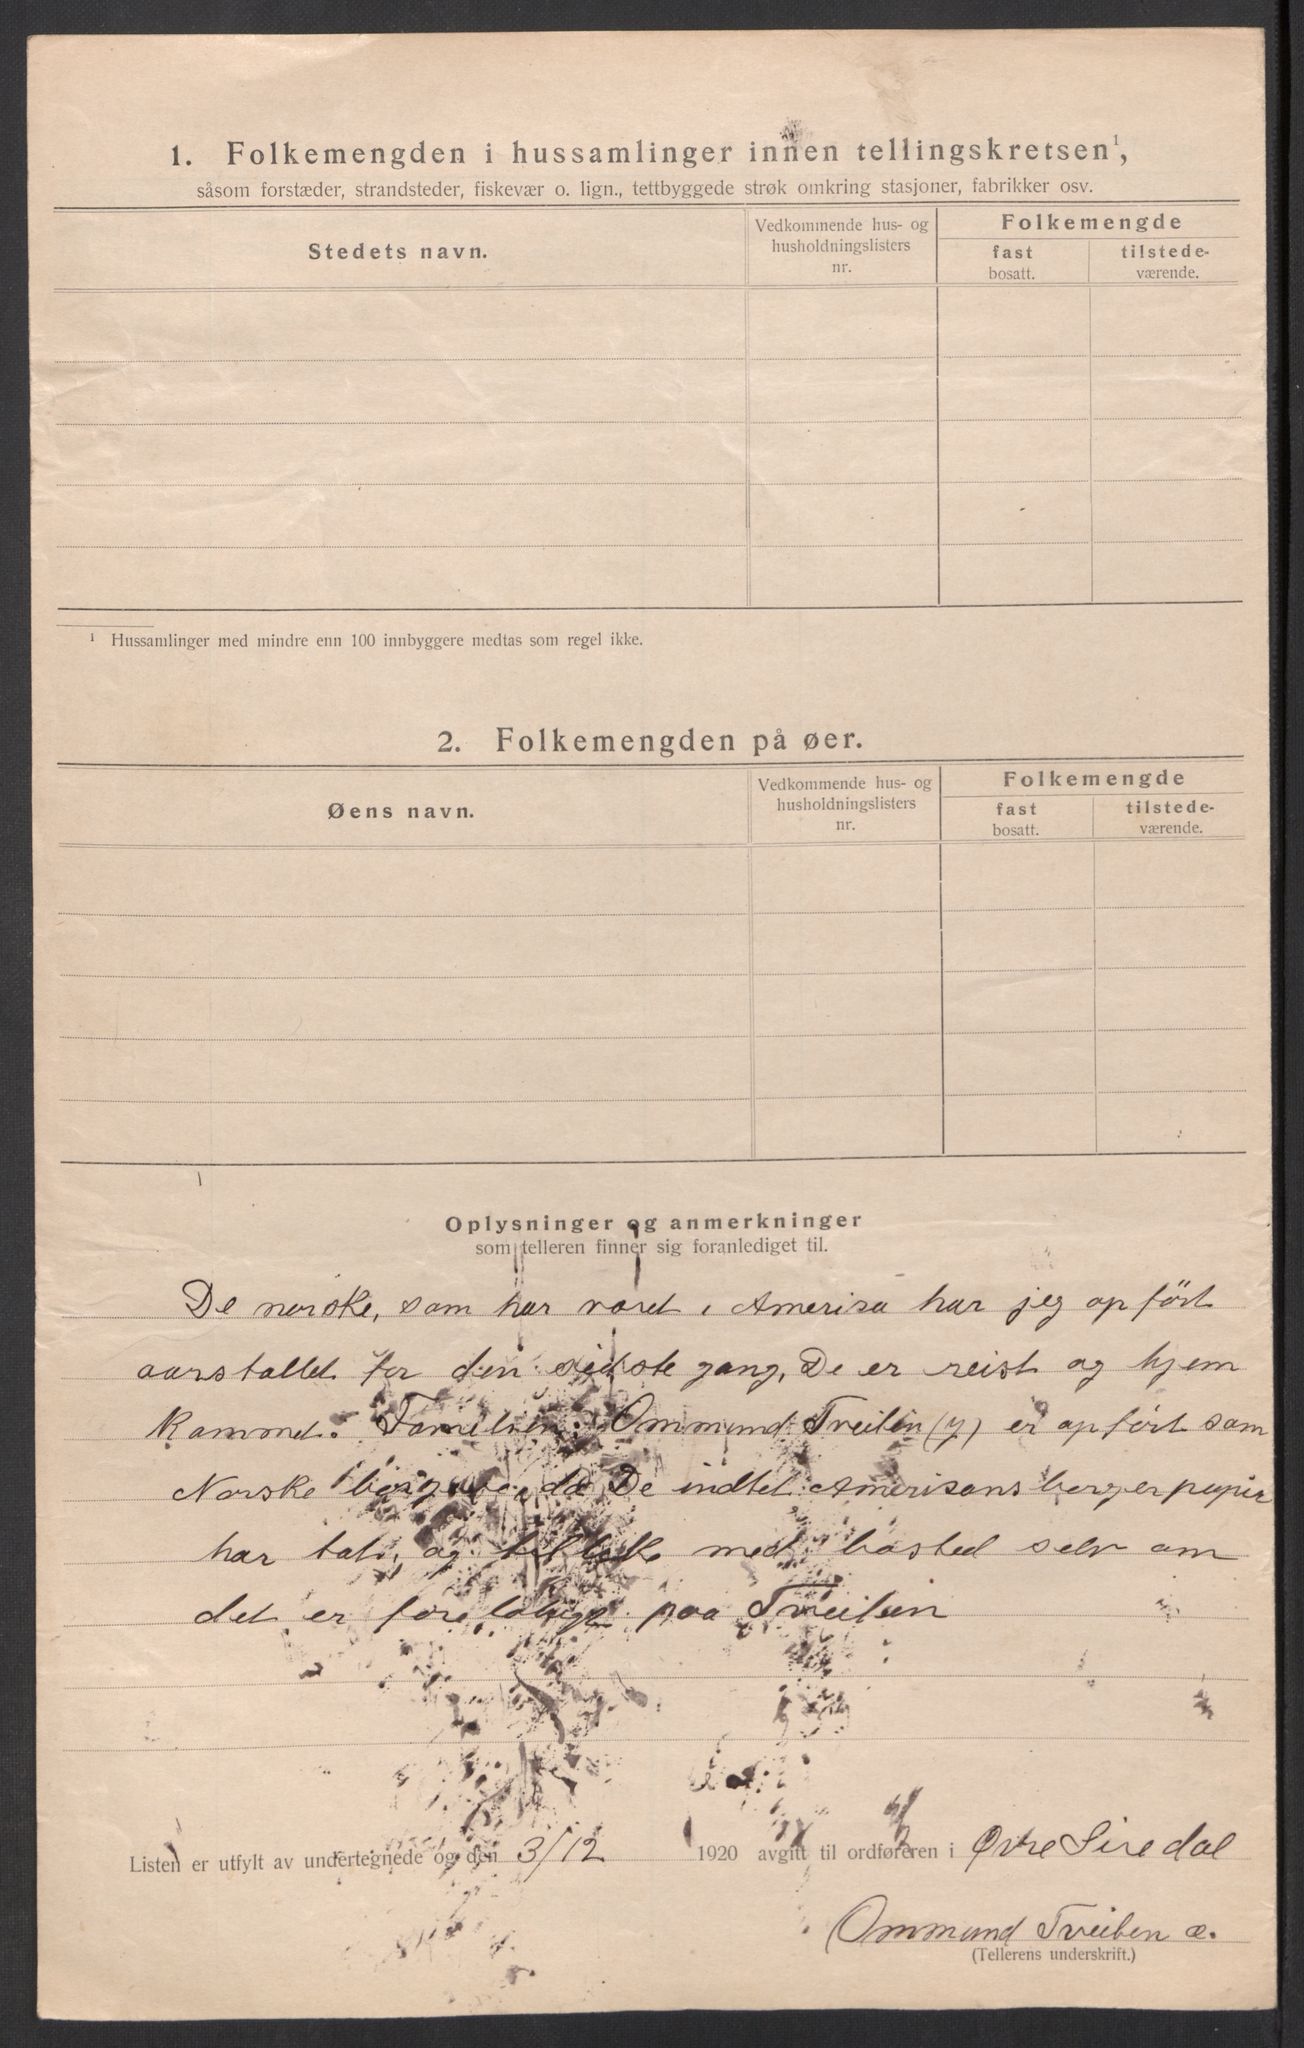 1. Folkemengden i hussamlinger innen tellingskretsen¹,
såsom forstæder, strandsteder, fiskevær o. lign., tettbyggede strøk omkring stasjoner, fabrikker osv.
Stedets navn.
Vedkommende hus- og
husholdningslisters
nr.
Folkemengde
fast
bosatt.
tilstede-
værende.
¹ Hussamlinger med mindre enn 100 innbyggere medtas som regel ikke.
2. Folkemengden på øer.
Øens navn.
Vedkommende hus- og
husholdningslisters
nr.
Folkemengde
fast
bosatt.
tilstede-
værende.
Oplysninger og anmerkninger
som telleren finner sig foranlediget til.
De norske, som har været i Amerika har jeg opført
aarstallet for den sidste gang, De er reist og hjem
kommet. Ommund Tveiten (y) er opført som
Norske da De indtet Amerikansborgerpapir
har tat, og med bosted selv om
det er paa Tveiten
Listen er utfylt av undertegnede og den 3/12 1920 avgitt til ordføreren i Øvre Siredal
Ommund Tveiten æ.
(Tellerens underskrift.)